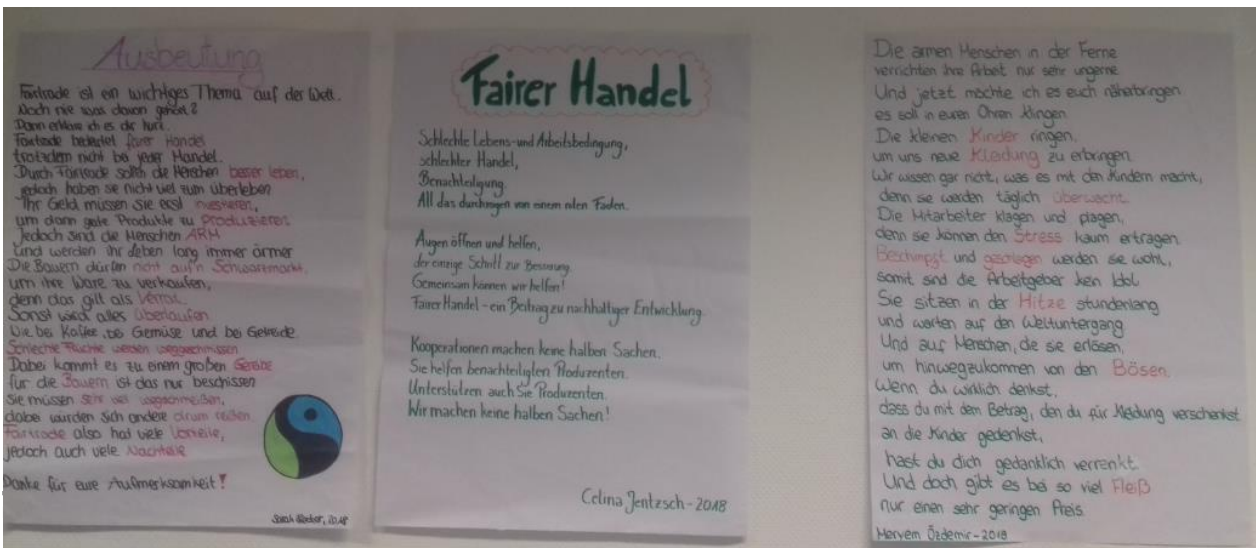 Ausbeutung
Fairtrade ist ein wichtiges Thema auf der Welt.
Noch nie was davon gehört?
Dann erkläre ich es dir kurz.
Fairtrade bedeutet fairer Handel
trotzdem nicht bei jeder Handel.
Durch Fairtrade sollen die Menschen besser leben,
jedoch haben sie nicht viel zum überleben
Ihr Geld müssen sie erst investieren,
um dann gute Produkte zu produzieren.
Jedoch sind die Menschen ARM
und werden ihr Leben lang immer ärmer
Die Bauern dürfen nicht auf'n Schwarzmarkt,
um ihre Ware zu verkaufen,
denn das gilt als Verrat.
Sonst wird alles überlaufen
Wie bei Kaffee, bei Gemüse und bei Getreide.
Schlechte Früchte werden weggeschmissen
Dabei kommt es zu einem großen
für die Bauern ist das nur beschissen
Sie müssen sehr viel wegschmeißen,
dabei würden sich andere drum reißen.
Fairtrade also hat viele Vorteile,
jedoch auch viele Nachteile
Danke für eure Aufmerksamkeit!
Sarah 2018
Fairer Handel
Schlechte Lebens- und Arbeitsbedingung,
schlechter Handel,
Benachteiligung.
All das durchzogen von einem roten Faden.
Augen öffnen und helfen,
der einzige Schritt zur Besserung.
Gemeinsam können wir helfen!
Fairer Handel - ein Beitrag zu nachhaltiger Entwicklung.
Kooperationen machen keine halben Sachen.
Sie helfen benachteiligten Produzenten.
Unterstützen auch Sie Produzenten.
Wir machen keine halben Sachen!
Celina Jentzsch - 2018
Die armen Menschen in der Ferne
verrichten ihre Arbeit nur sehr ungerne
Und jetzt möchte ich es euch näherbringen.
es soll in euren Ohren klingen
Die kleinen Kinder ringen.
um uns neue Kleidung zu erbringen.
Wir wissen gar nicht, was es mit den Kindern macht,
denn sie werden täglich überwacht.
Die Mitarbeiter klagen und plagen,
denn sie können den Stress kaum ertragen.
Beschimpft und geschlagen werden sie wohl,
somit sind die Arbeitgeber kein Idol
Sie sitzen in der Hitze stundenlang
und warten auf den Weltuntergang
Und auf Menschen, die sie erlösen,
um hinwegzukommen von den Bösen.
Wenn du wirklich denkst,
dass du mit dem Betrag, den du für Kleidung verschenkst
an die Kinder gedenkst,
hast du dich gedanklich verrenkt.
Und doch gibt es bei so viel Fleiß
nur einen sehr geringen Preis.
Meryem Özdemir - 2018